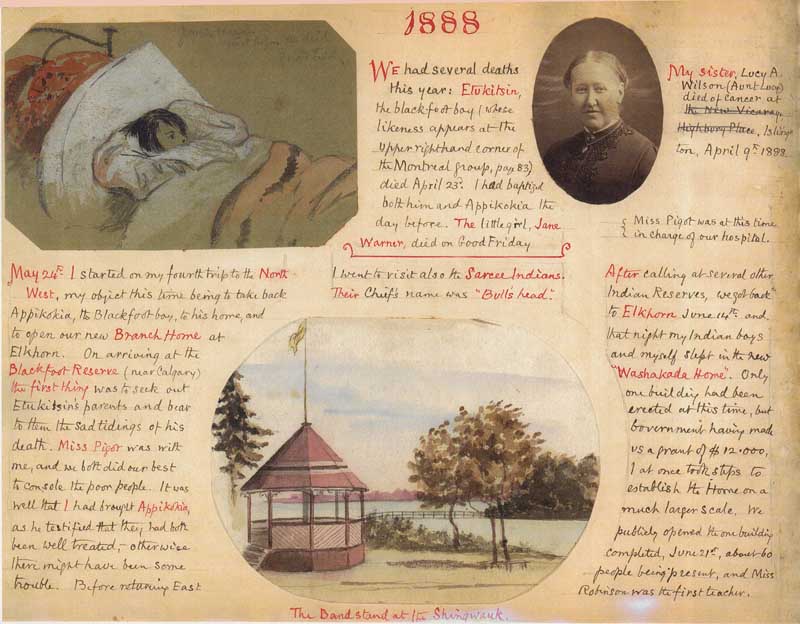 1888
WE had several deaths
this year: Etukitsin,
the blackfoot boy (whose
likeness appears at the
upper righthand corner of
the Montreal group, page 83)
died April 23rd. I had baptized
both him and Appikokia the
day before. The little girl, Jane
Warner, died on Good Friday
My sister, Lucy A.
Wilson (Aunt Lucy)
died of cancer at
the New Vicarage,
Highbury Place, Isling
ton, April 9th 1888
Miss Pigot was at this time
in charge of our hospital.
May 24th I started on my fourth trip to the North
West, my object this time being to take back
Appikokia, the Blackfoot boy, to his home, and
to open our new Branch Home at
Elkhorn. On arriving at the
Blackfoot Reserve (near Calgary)
the first thing was to seek out
Etukitsin's parents and bear
to them the sad tidings of his
death. Miss Pigot was with
me, and we both did our best
to console the poor people. It was
well that I had brought Appikokia,
as he testified that they had both
been well treated, – otherwise
there might have been some
trouble. Before returning East
I went to visit also the Sarcee Indians.
Their Chief's name was "Bull's head".
After calling at several other
Indian Reserves, we got back
to Elkhorn June 14th and
that night my Indian boys
and myself slept in the new
"Washakada Home". Only
one building had been
erected at this time, but
Government having made
us a grant of $12.000,
I at once took steps to
establish the Home on a
much larger scale. We
publicly opened the one building
completed, June 21st, about 60
people being present, and Miss
Robinson was the first teacher.
The Bandstand at the Shingwauk.